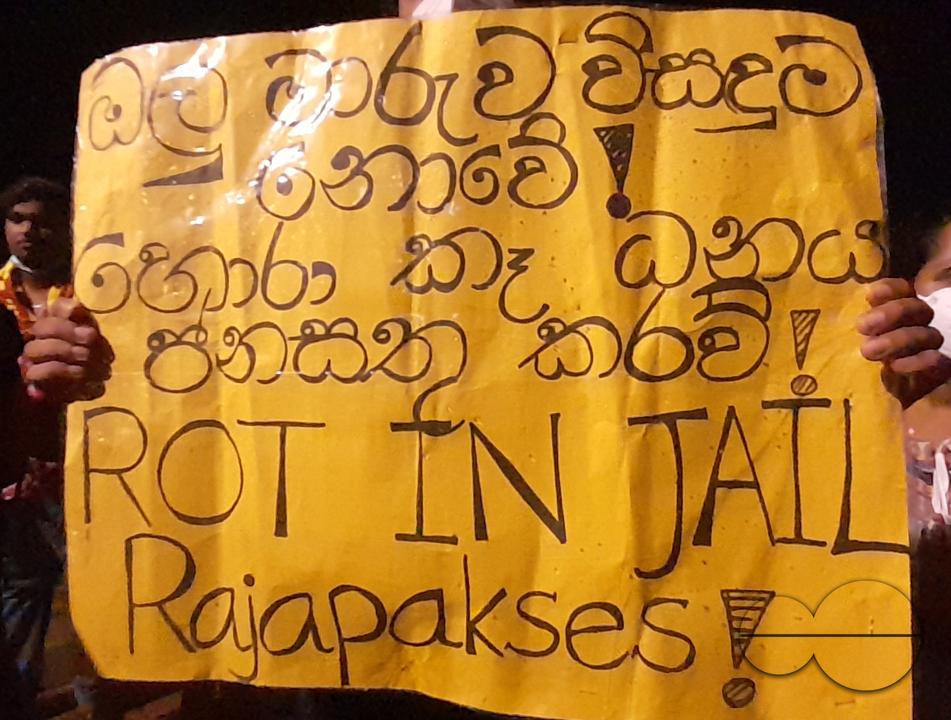 ඔලු මාරුව විසදුම
නොවේ!
හොරා කෑ ධනය
ජනසතු කරව්!
ROT IN JAIL
Rajapakses!